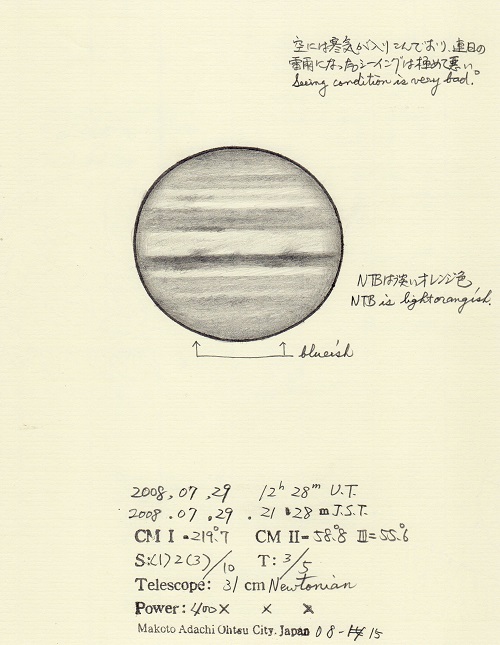 空には寒気が入りこんでおり、連日の
雷雨になった為シーイングは極めて悪い。
Seeing condition is very bad.
NTBは淡いオレンジ色
NTB is light orangish.
blueish
2008.07.29 12h 28m U.T.
2008.07.29. 21 28 m J.S.T.
CM I = 219°.7 CM II = 58°.8 III = 55°.6
S:(1)2(3)/10 T: 3/5
Telescope: 31 cm Newtonian
Power: 400× × ×
Makoto Adachi Ohtsu City. Japan 08-15